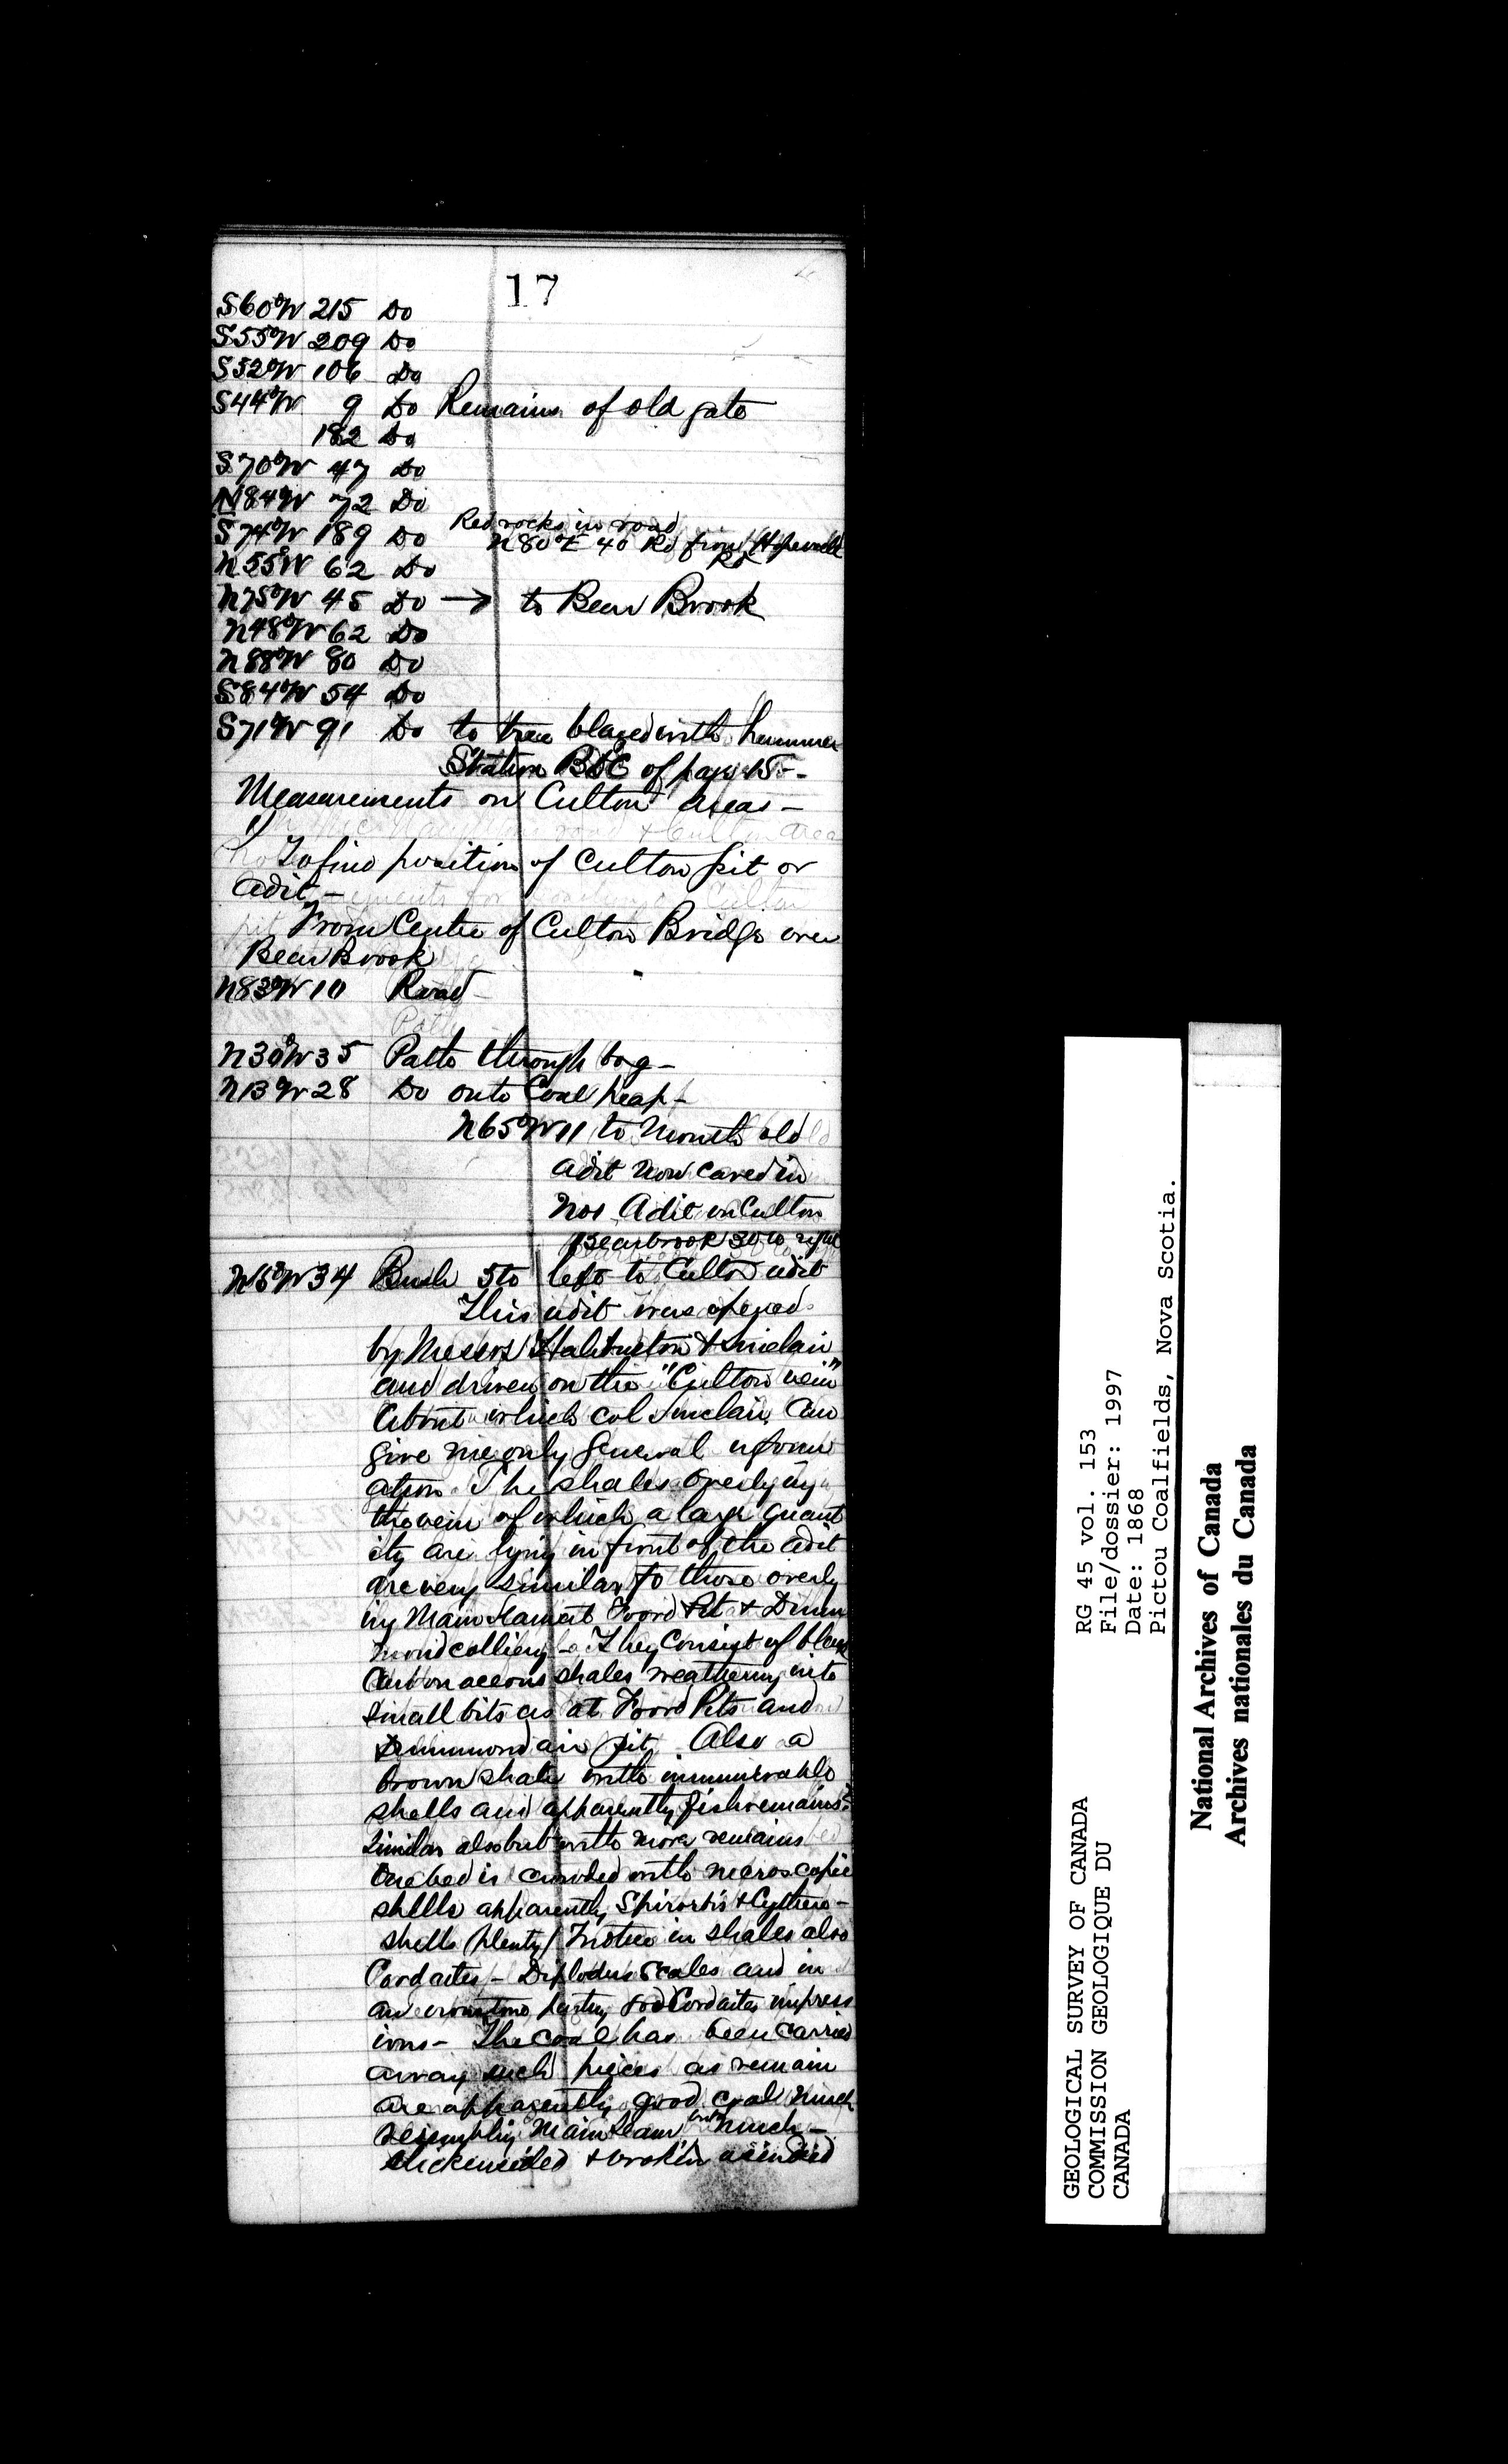 17
S60°W 215 Do
S55°W 209 Do
S52°W 106 Do
S44°W 9 Do Remains of old gate
182 Do
S70°W 47 Do
N84°W 72 Do
Red rocks in road
S74°W 189 Do N80°E 40 Rd from Hopewell
Rd
N55°W 62 Do
N75°W 45 Do → to Bear Brook
N48°W 62 Do
N88°W 80 Do
S84°W 54 Do
S71°W 91 Do to tree blazed with hammer
Station of page 15-
Measurements on Culton areas -
1) To find position of Culton pit or
adit -
From Centre of Culton Bridge over
Bear Brook
N83°W 10 Road
Path
N30°W 35 Path through bog -
N13°W 28 Do onto Coal heap -
N65°W 11 to mouth old
adit now caved in
No 1 Adit on Culton
Bearbrook 30 to right
N16°W 34 Bush 5 to left to Culton adit
This adit was opened
by Messrs Haliburton & Sinclair
and driven on the "Culton vein"
About which col Sinclair can
give me only general inform
ation. The shales overlying
the vein of which a large quant
ity are lying in front of the adit
are very similar to those overly
ing Main Seam at Foord Pit & Drum
mond colliery - They Consist of black
Carbonaceous shales weathering into
small bits as at Foord Pits and
Drummond air pit. Also a
brown shale with innumerable
shells and apparently fish remains
Similar also but with more remains
One bed is crowded with microscopic
shells apparently Spirorbis & Cythere -
shells plenty/ I notice in shales also
Cordaites - Diplodus Scales and in
an ironstone parting Cordaites impress
ions - The coal has been carried
away such pieces as remain
are apparently good coal much
resembling Main Seam but much -
slickensided & broken
GEOLOGICAL SURVEY OF CANADA
COMMISSION GEOLOGIQUE DU
CANADA
RG 45 vol. 153
File/dossier: 1997
Date: 1868
Pictou Coalfields, Nova Scotia.
National Archives of Canada
Archives nationales du Canada